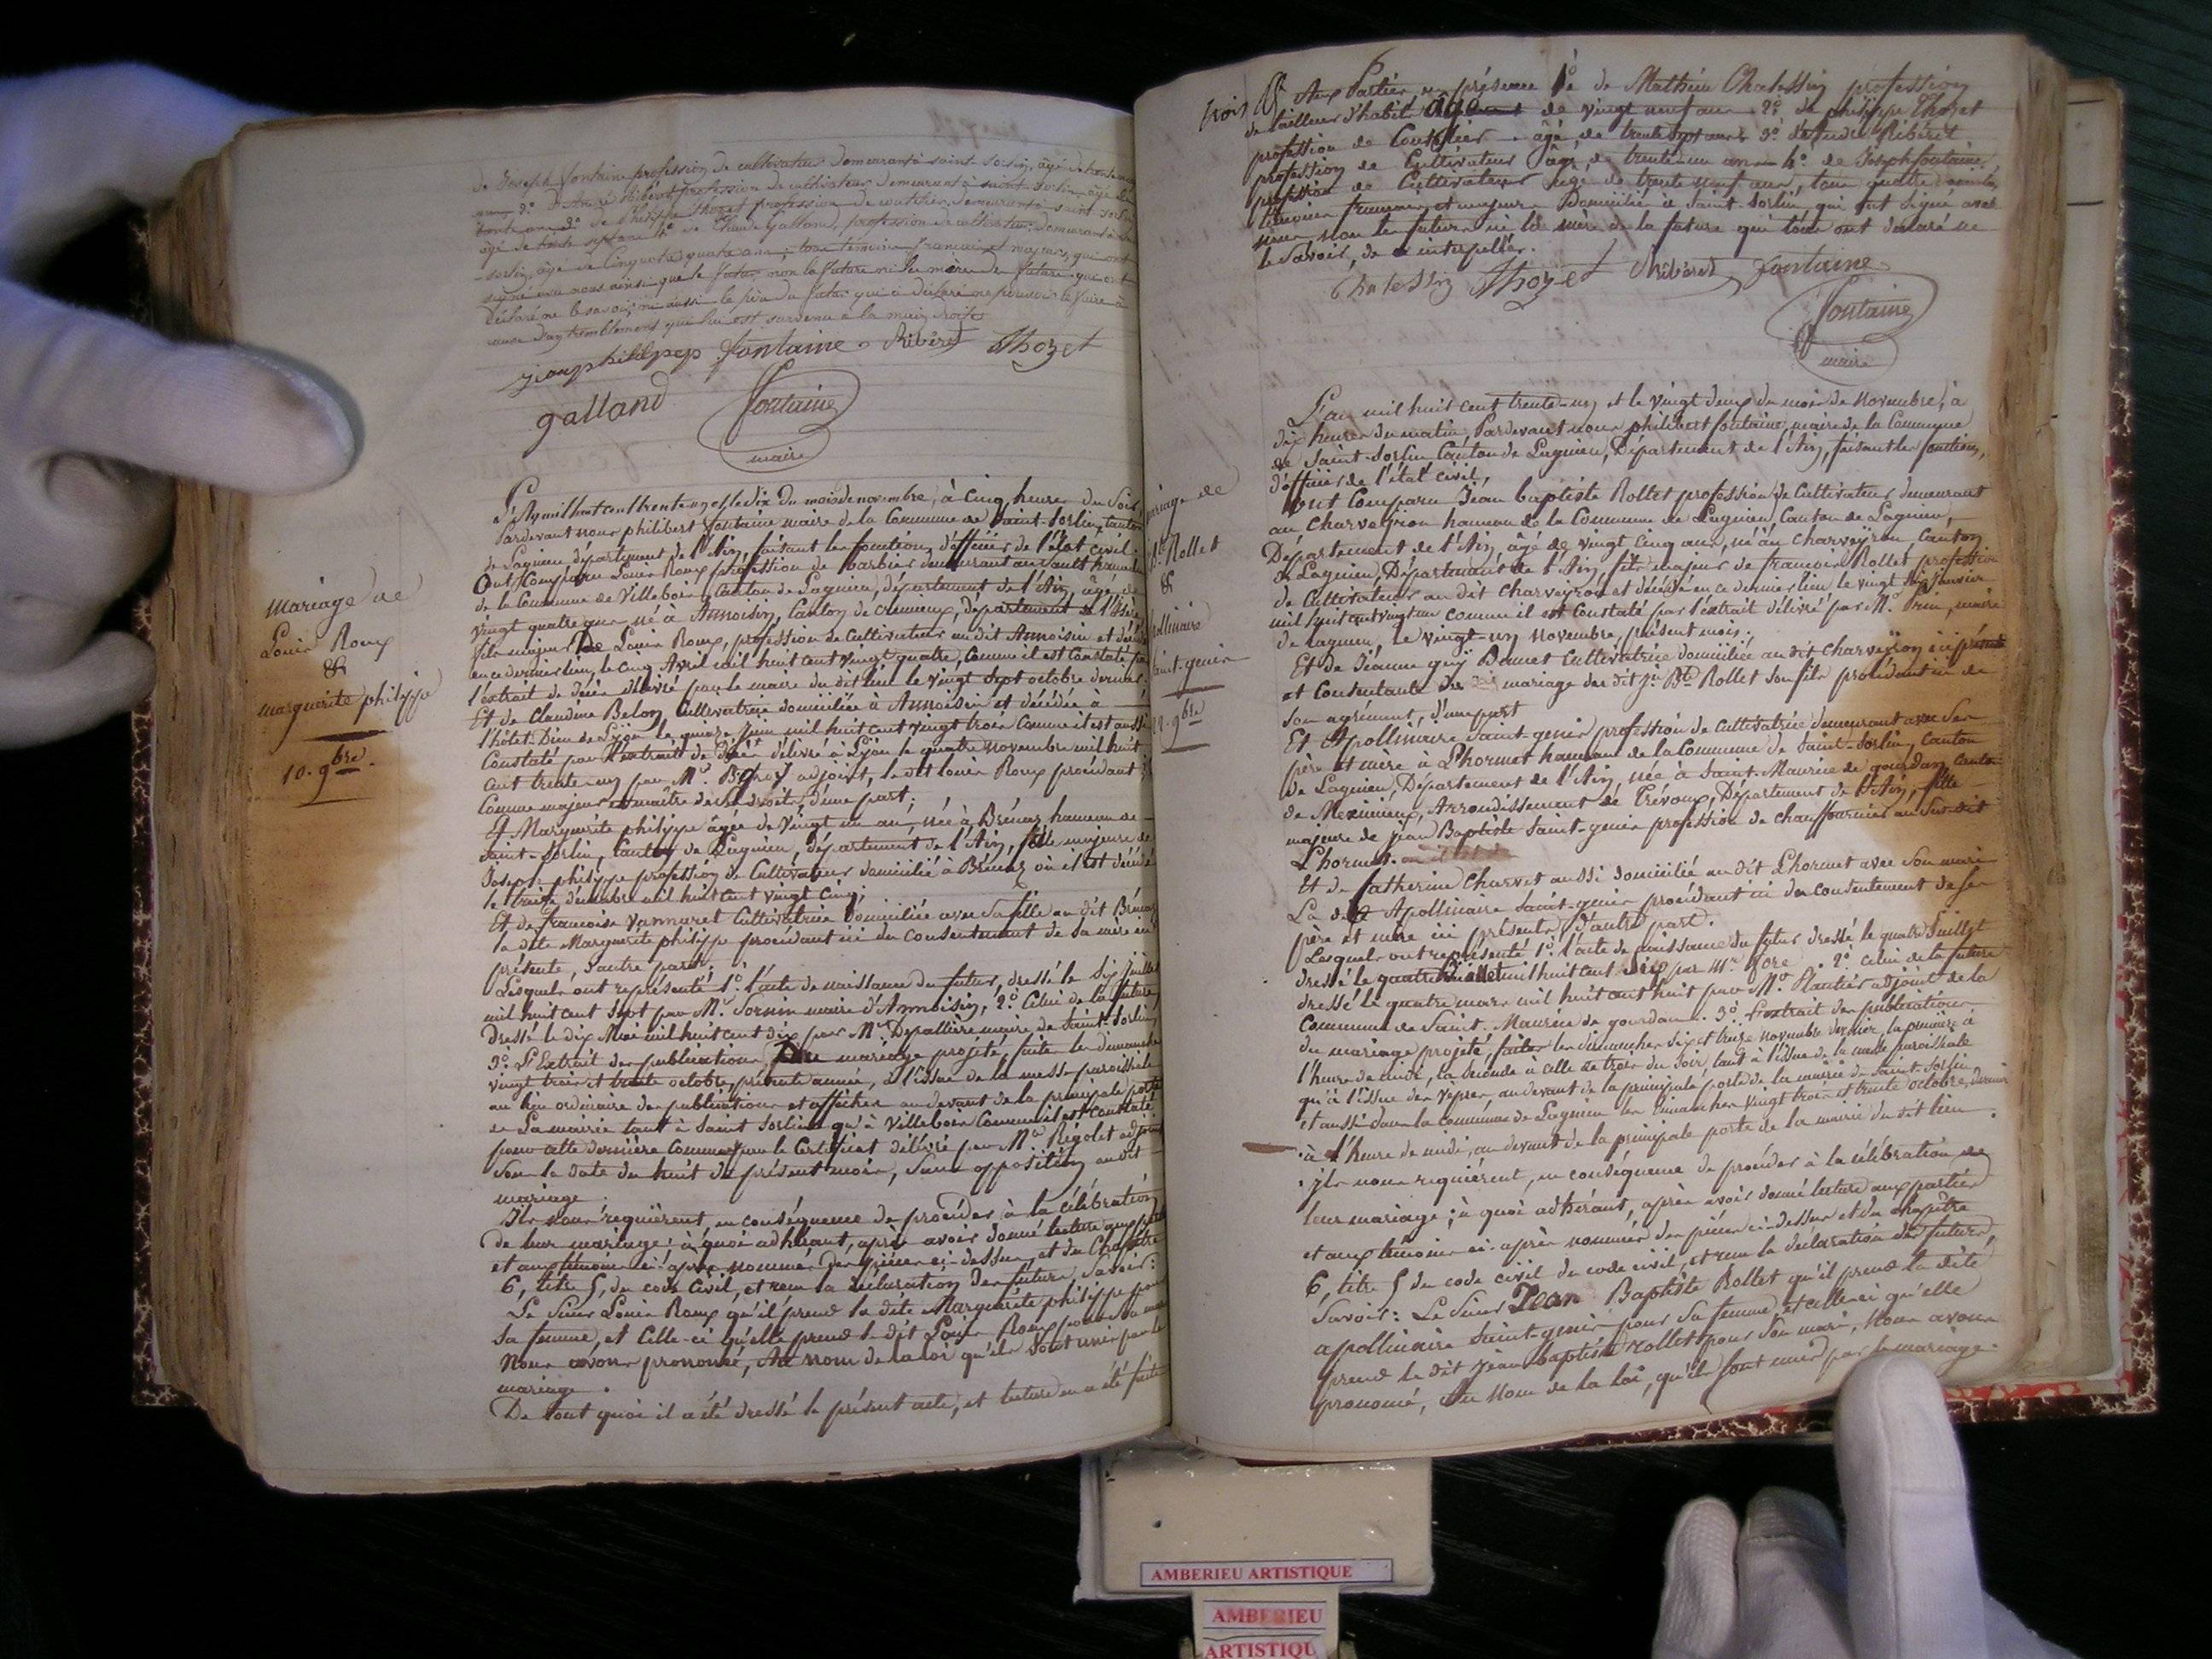 de Joseph fontaine profession de cultivateur demeurant à saint-Sorlin, âgé de trente neuf
ans 2.° d'André Ribéret profession de cultivateur demeurant à saint Sorlin âgé de
trente ans 3.° de Philippe Thozet profession de coutelier demeurant à saint sorlin
âgé de trente sept ans 4.° de Claude Galland, profession de cultivateur demeurant à
sorlin, âgé de Cinquante quatre ans, tous témoins francais et majeurs, qui ont
signé avec nous ainsi que le futur non la future ni les mères des futurs qui ont
déclaré ne le savoir, ni aussi le père du futur qui a déclaré ne pouvoir le faire à
cause d'un tremblement qui lui est survenu à la main droite
fontaine Ribéret Thozet
galland fontaine
maire
mariage de
Louis Roux
&
marguerite philippe
10. 9bre.
L'An mil huit cent trente-un et le dix du mois de novembre, à cinq heures du Soir,
Pardevant nous philibert fontaine maire de la Commune de Saint-Sorlin, canton
de Lagnieu département de l'Ain, faisant les fonctions d'officier de l'état civil.
Ont Comparu Louis Roux profession de barbier demeurant au Sault hameau
de la Commune de Villebois, Canton de Lagnieu, département de l'Ain, âgé de
vingt quatre ans né à Annoisin, Canton de cremieux, département de l'Isère
fils majeur De Louis Roux, profession de Cultivateur au dit Annoisin et décédé
en ce dernier lieu, le cinq Avril mil huit cent vingt quatre, comme il est constaté par
l'extrait de décès délivré par le maire du dit lieu le vingt sept octobre dernier
Et de Claudine Belon Cultivatrice domiciliée à Annoisin et décédée à
l'hôtel-Dieu de Lyon le quinze Juin mil huit cent vingt trois Comme il est aussi
Constaté par l'extrait de décès délivré à Lyon le quatre novembre mil huit
cent trente un par M.r adjoint, le dit louis Roux procédant ici
Comme majeur et maître de ses droits, d'une part;
Et Marguerite philippe âgée de vingt un ans, née à Brénaz hameau de
Saint-Sorlin, Canton de Lagnieu, département de l'Ain, fille majeure de
Joseph philippe profession de Cultivateur domicilié à Brénaz où il est décédé
le treize décembre mil huit cent vingt cinq;
Et de francoise Vannaret Cultivatrice domiciliée avec sa fille au dit Brénaz
la dite Marguerite philippe procédant ici du consentement de sa mère ici
présente, d'autre part;
Lesquels ont représenté 1.° l'acte de naissance du futur, dressé le six juillet
mil huit cent sept par M.r Sornin maire d'Annoisin, 2.° Celui de la future
Dressé le dix Mai mil huit cent dix par M.r Depallière maire de Saint-Sorlin,
3.° L'Extrait des publications De mariage projeté, faites les dimanches
vingt trois et trente octobre, présente année, à l'issue de la messe paroissiale
au lieu ordinaire des publications et affiches au devant de la principale porte
de La mairie tant à Saint Sorlin qu'à Villebois Comme il est constaté
pour cette dernière Commune par le Certificat délivré par M.r Rigolet adjoint
Sous la date du huit du présent mois, Sans opposition au dit
mariage.
Ils nous requièrent, en conséquence de procéder à la célébration
de leur mariage; à quoi adhérant, après avoir donné lecture aux parties
et aux témoins ci-après nommés des pièces ci-dessus, et du Chapitre
6, titre 5, du code Civil, et reçu la déclaration des futurs, Savoir:
Le Sieur Louis Roux qu'il prend la dite Marguerite philippe pour
Sa femme, et Celle-ci qu'elle prend le dit Louis Roux pour Son mari
Nous avons prononcé, Au nom de la loi qu'ils sont unis par le
mariage.
De tout quoi il a été dressé le présent acte, et lecture en a été faite
trois
Aux Parties, en présence 1.° de Mathieu Chalessin profession
de tailleur d'habit âgé de vingt neuf ans 2.° de philippe Thozet
profession de Coutelier âgé de trente sept ans 3.° d'André Ribéret
profession de Cultivateur âgé de trente-un ans 4.° de Joseph fontaine
profession de Cultivateur âgé de trente neuf ans, tous quatre
témoins francais, et majeurs Domiciliés à Saint-Sorlin, qui ont signé avec
nous non les futurs ni la mère de la future qui tous ont déclaré ne
le Savoir, de ce interpellés.
Chalessin Thozet Ribéret fontaine
fontaine
maire
mariage de
Bte Rollet
&
Apollinaire
Saint-genis
22. 9bre
L'an mil huit cent trente-un et le vingt deux du mois de Novembre, à
dix heures du matin, Pardevant nous philibert fontaine, maire de la Commune
de Saint-Sorlin Canton de Lagnieu, Département de l'Ain, faisant les fonctions
d'officier de l'état civil,
Ont Comparu Jean baptiste Rollet profession de Cultivateur demeurant
au Charveyron hameau de la Commune de Lagnieu, Canton de Lagnieu,
Département de l'Ain, âgé de vingt cinq ans, né au Charveyron Canton
de Lagnieu, Département de l'Ain fils majeur de francois Rollet profession
de Cultivateur au dit Charveyron et décédé en ce dernier lieu le vingt six janvier
mil huit cent vingt un comme il est Constaté par l'extrait délivré par M.r maire
de lagnieu, le vingt-un novembre, présent mois;
Et de Jeanne guy Bonnet cultivatrice domiciliée au dit Charveyron ici présente
et Consentante du mariage du dit Jn. Bte Rollet Son fils procédant ici de
Son agrément, d'une part
Et Apollinaire Saint-genis profession de Cultivatrice demeurant avec Ses
père et mère à L'hormet hameau de la Commune de Saint-Sorlin, Canton
De Lagnieu, Département de l'Ain, née à Saint-Maurice de gourdan Canton
de Meximieux, Arrondissement de Trévoux, Département de l'Ain, fille
majeure de jean Baptiste Saint-genis profession de chauffournier au Susdit
L'hormet.
Et de Catherine Charvet aussi domiciliée au dit L'hormet avec Son mari
La dite Apollinaire Saint-genis procédant ici du consentement de Ses
père et mère ici présents, d'autre part.
Lesquels ont représenté 1.° l'acte de naissance du futur dressé le quatre Juillet
dressé le quatre Juillet mil huit cent six par M.r 2.° Celui de la future
dressé le quatre mars mil huit cent huit par M.r Plantier adjoint de la
Commune de Saint-Maurice de gourdan. 3.° L'extrait des publications
du mariage projeté, faites les dimanches six et treize novembre dernier, la première à
l'heure de midi, la seconde à celle de trois du Soir, tant à l'issue de la messe paroissiale
qu'à l'issue des vêpres, au devant de la principale porte de la mairie de Saint-Sorlin
et aussi dans la commune de Lagnieu les Dimanches vingt trois et trente octobre, dernier
à l'heure de midi, au devant de la principale porte de la mairie du dit lieu.
ils nous requièrent, en conséquence de procéder à la célébration de
leur mariage; à quoi adhérant, après avoir donné lecture aux parties
et aux témoins ci-après nommés des pièces ci-dessus et du chapitre
6, titre 5 du code civil du code civil, et reçu la déclaration des futurs,
Savoir: Le Sieur Jean Baptiste Rollet qu'il prend la dite
apollinaire Saint-genis pour Sa femme, et celle-ci qu'elle
prend le dit Jean baptiste rollet pour Son mari, Nous avons
prononcé, Au Nom de la loi, qu'ils sont unis par le mariage.
AMBERIEU ARTISTIQUE
AMBERIEU
ARTISTIQU